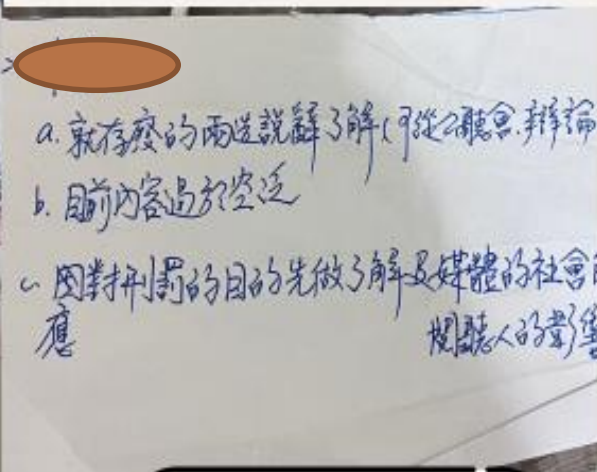 a. 就存廢的兩造說辭了解(可從公聽會.辯論
b. 目前內容過於空泛
c. 因對刑罰的目的先做了解及媒體的社會
應
閱聽人的影響